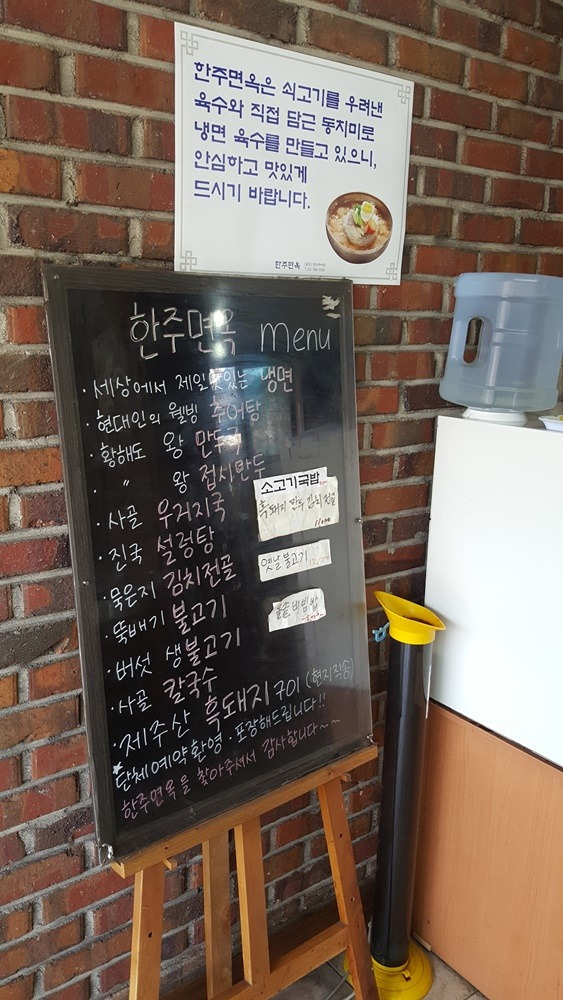 한주면옥은 쇠고기를 우려낸
육수와 직접 담근 동치미로
냉면 육수를 만들고 있으니,
안심하고 맛있게
드시기 바랍니다.
한주면옥
한주면옥 menu
· 세상에서 제일 맛있는 냉면
· 현대인의 웰빙 추어탕
· 황해도 왕 만두국
· 〃 왕 접시만두
· 사골 우거지국
· 진국 설렁탕
· 묵은지 김치전골
· 뚝배기 불고기
· 버섯 생불고기
· 사골 칼국수
· 제주산 흑돼지 구이 (현지직송)
단체예약환영 · 포장해드립니다!!
한주면옥을 찾아주셔서 감사합니다~~
소고기국밥
흑돼지 만두 김치전골
옛날불고기
비빔밥